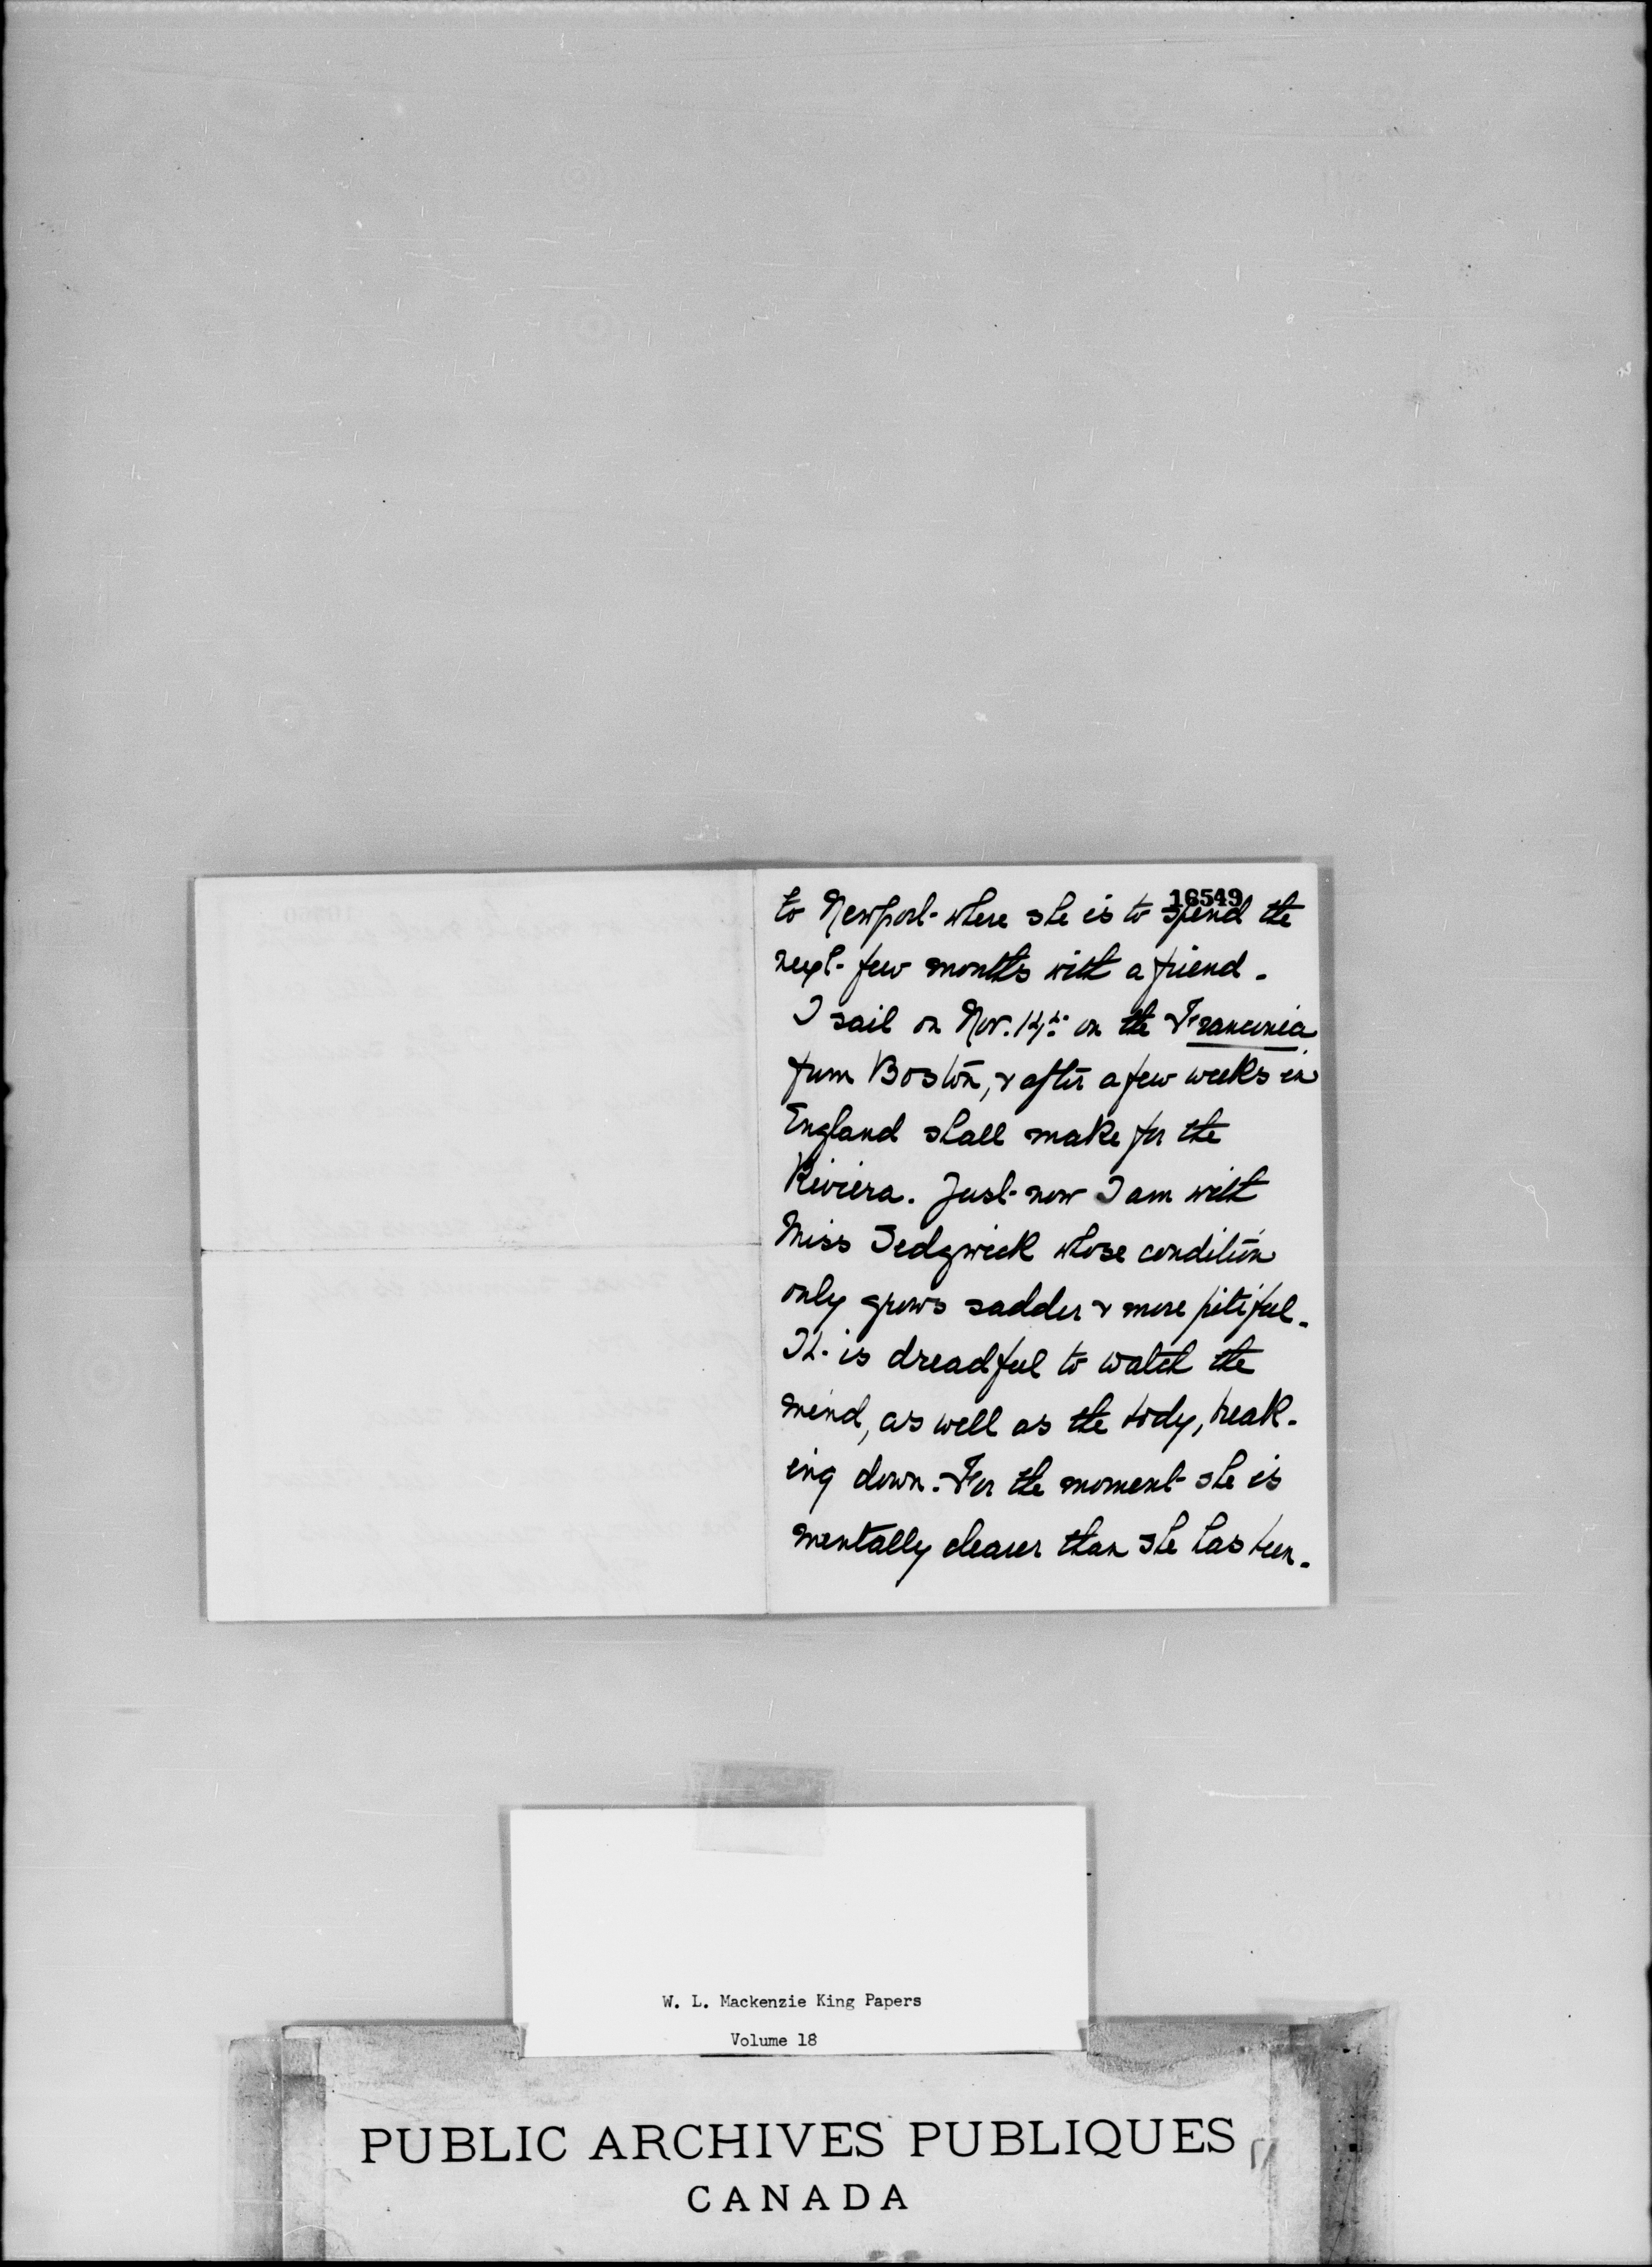 16549
to Newport where she is to spend the
next few months with a friend.
I sail on Nov. 14th on the Franconia
from Boston, & after a few weeks in
England shall make for the
Riviera. Just now I am with
Miss Sedgwick whose condition
only grows sadder & more pitiful.
It is dreadful to watch the
mind, as well as the body, break-
ing down. For the moment she is
mentally clearer than she has been.
W. L. Mackenzie King Papers
Volume 18
PUBLIC ARCHIVES PUBLIQUES
CANADA